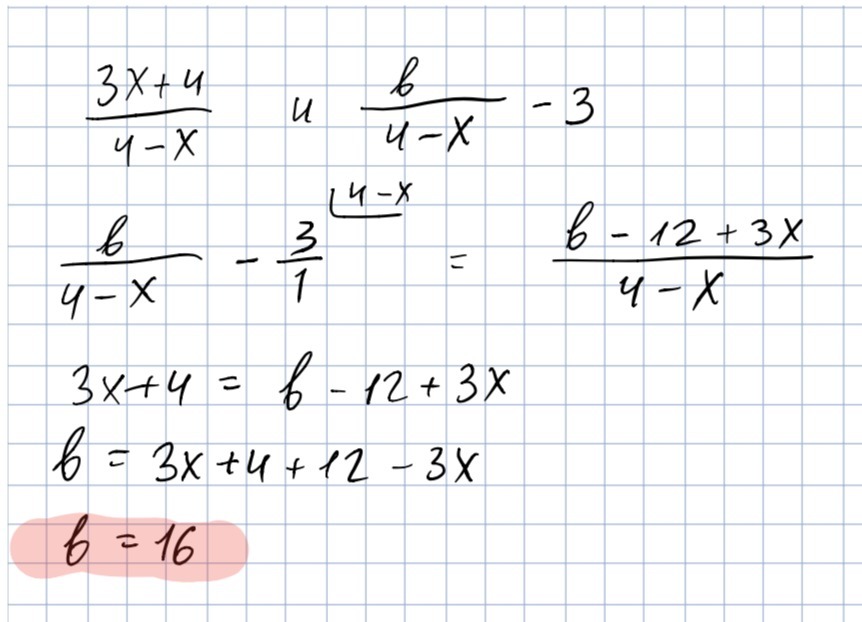 (3x+4)/(4-x) и b/(4-x) - 3
b/(4-x) - 3/1 ⌊4-x = (b - 12 + 3x)/(4-x)
3x+4 = b - 12 + 3x
b = 3x + 4 + 12 - 3x
b = 16